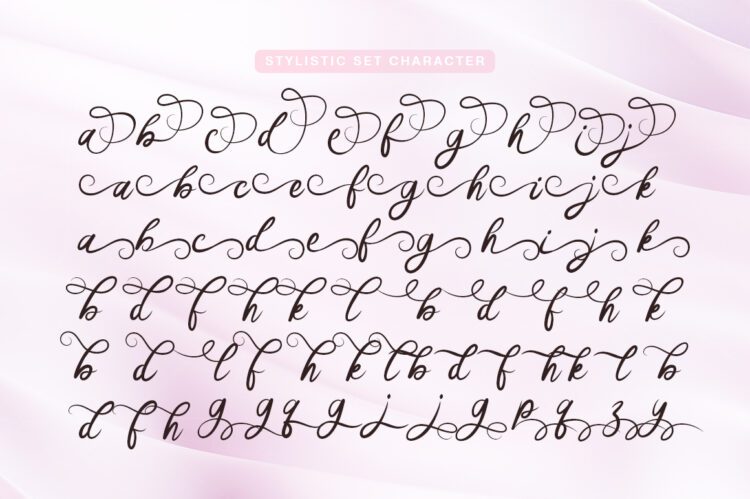 STYLISTIC SET CHARACTER
a b c d e f g h i j
a b c e f g h i j k
a b c d e f g h i j k
b d f h k l b d f h k
b d l f h k l b d f h k l b
d f h g g g g j j g p q z y